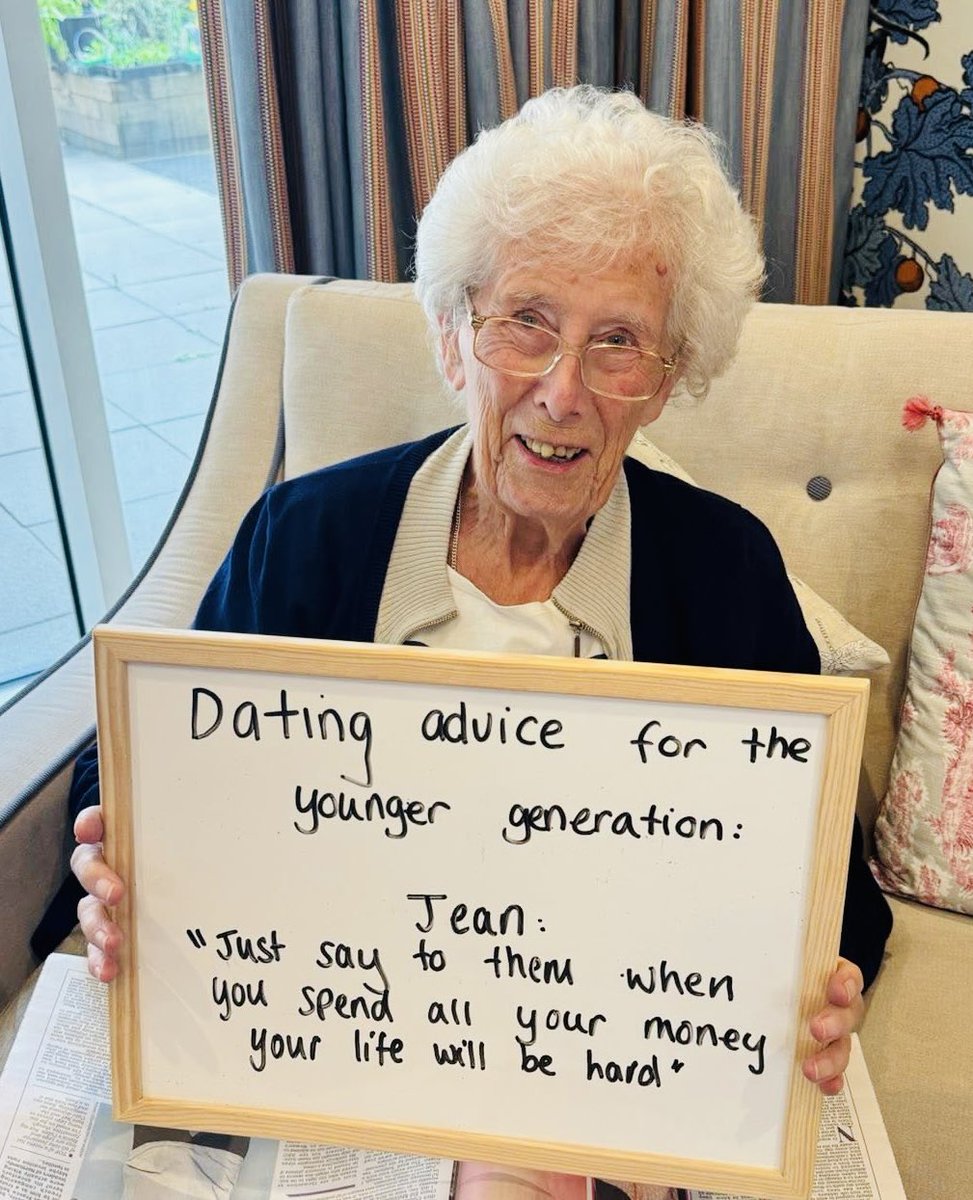 Dating advice for the
younger generation:
Jean:
"Just say to them when
you spend all your money
your life will be hard"